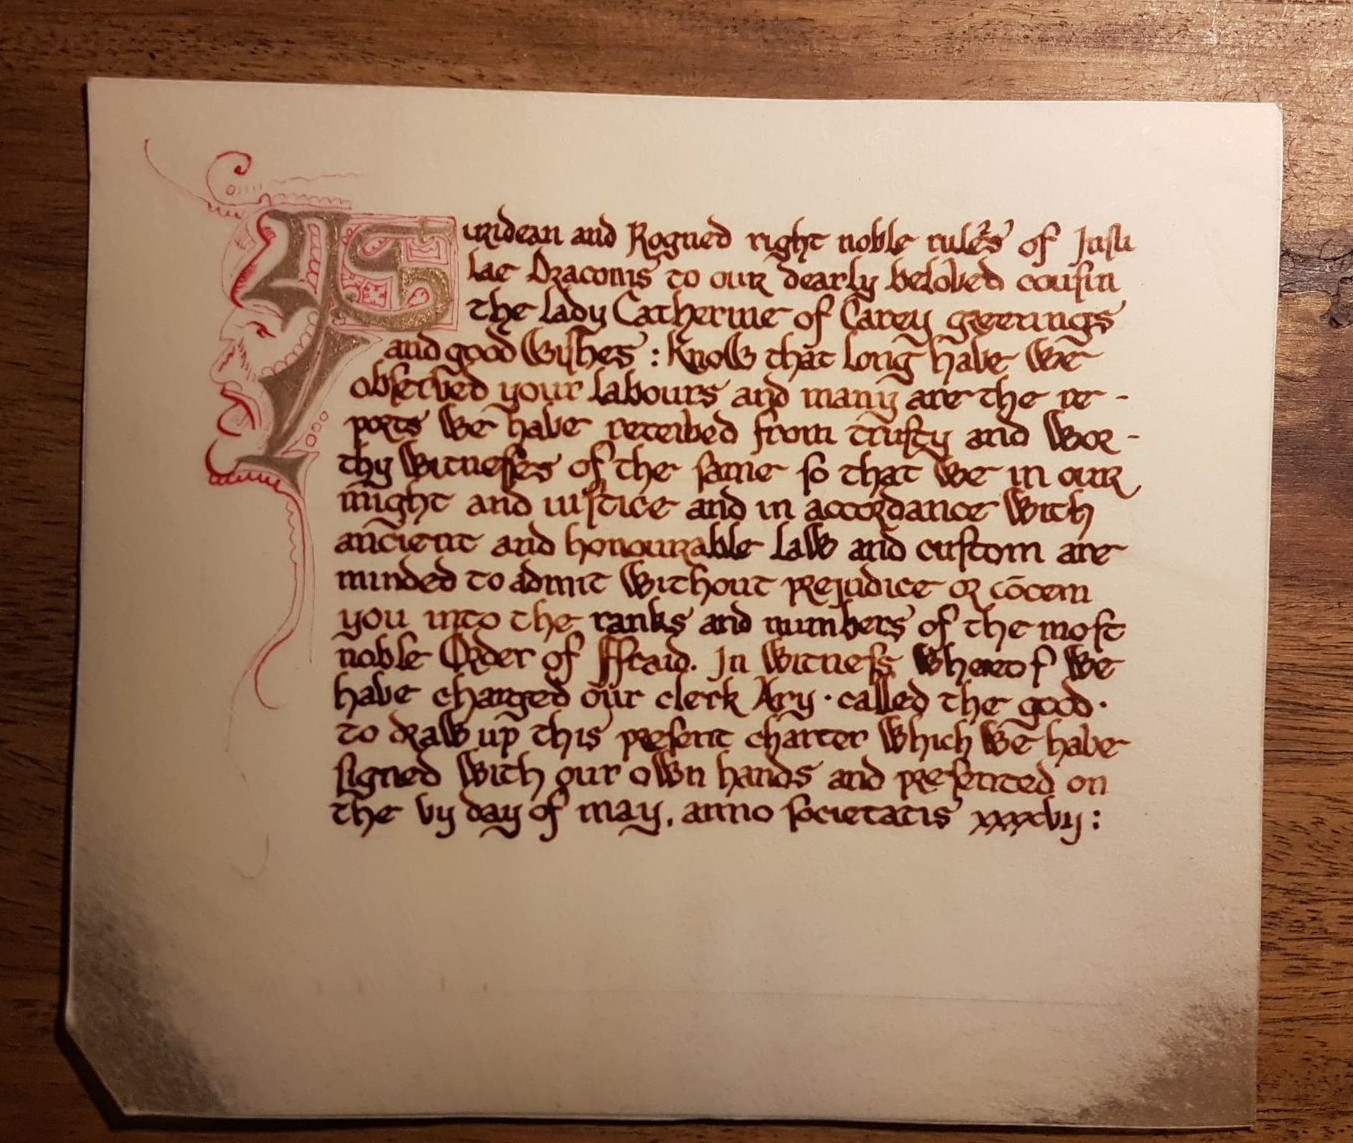 uridean and Rogned right noble rulers of Insu
lae Draconis to our dearly beloved cousin
the Lady Catherine of Carey greetings
and good wishes : Know that long have we
observed your labours and many are the re -
ports we have received from trusty and wor -
thy witnesses of the same so that we in our
might and iustice and in accordance with
ancient and honourable law and custom are
minded to admit without prejudice or
you into the ranks and numbers of the most
noble Order of ffraid. In witness whereof we
have charged our clerk Ary · called the good ·
to draw up this present charter which we have
signed with our own hands and presented on
the vij day of may, anno societatis xxxxvij :